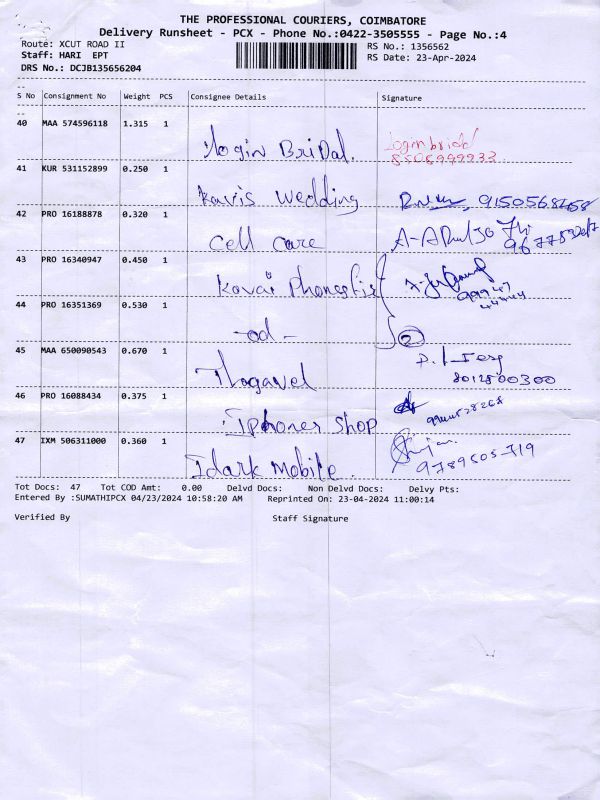 THE PROFESSIONAL COURIERS, COIMBATORE
Delivery Runsheet - PCX - Phone No.:0422-3505555 - Page No.:4
Route: XCUT ROAD II
RS No.: 1356562
Staff: HARI EPT
RS Date: 23-Apr-2024
DRS No.: DCJB135656204
S No Consignment No Weight PCS Consignee Details Signature
40 MAA 574596118 1.315 1
login Bridal. loginbridal
41 KUR 531152899 0.250 1
kavis wedding 9150568458
42 PRO 16188878 0.320 1
cell care
43 PRO 16340947 0.450 1
Kovai Phones
44 PRO 16351369 0.530 1
-od- 2
45 MAA 650090543 0.670 1
8012800300
46 PRO 16088434 0.375 1
Iphones shop
47 IXM 506311000 0.360 1
Idark Mobile. 9789605719
Tot Docs: 47 Tot COD Amt: 0.00 Delvd Docs: Non Delvd Docs: Delvy Pts:
Entered By :SUMATHIPCX 04/23/2024 10:58:20 AM Reprinted On: 23-04-2024 11:00:14
Verified By Staff Signature